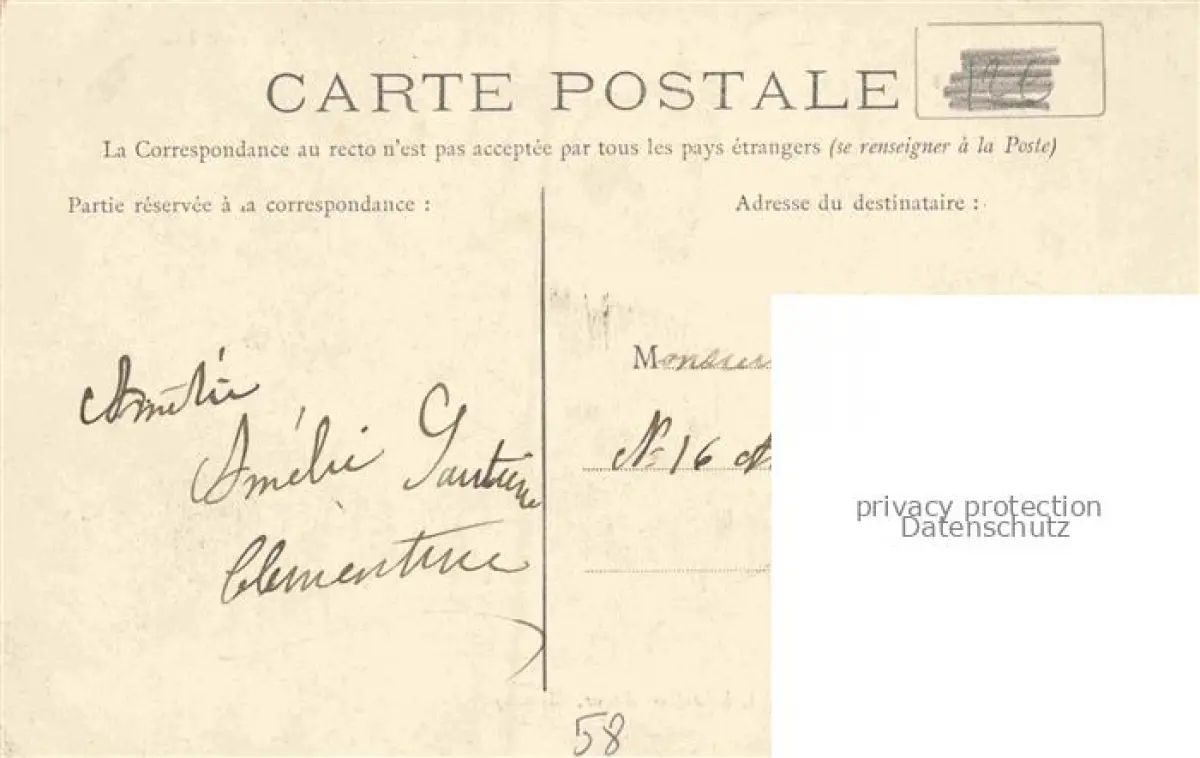 CARTE POSTALE
La Correspondance au recto n'est pas acceptée par tous les pays étrangers (se renseigner à la Poste)
Partie réservée à la correspondance :
Adresse du destinataire :
Monsieur
N: 16
Amélie
Amélie Gautier
Clementine
58
privacy protection
Datenschutz